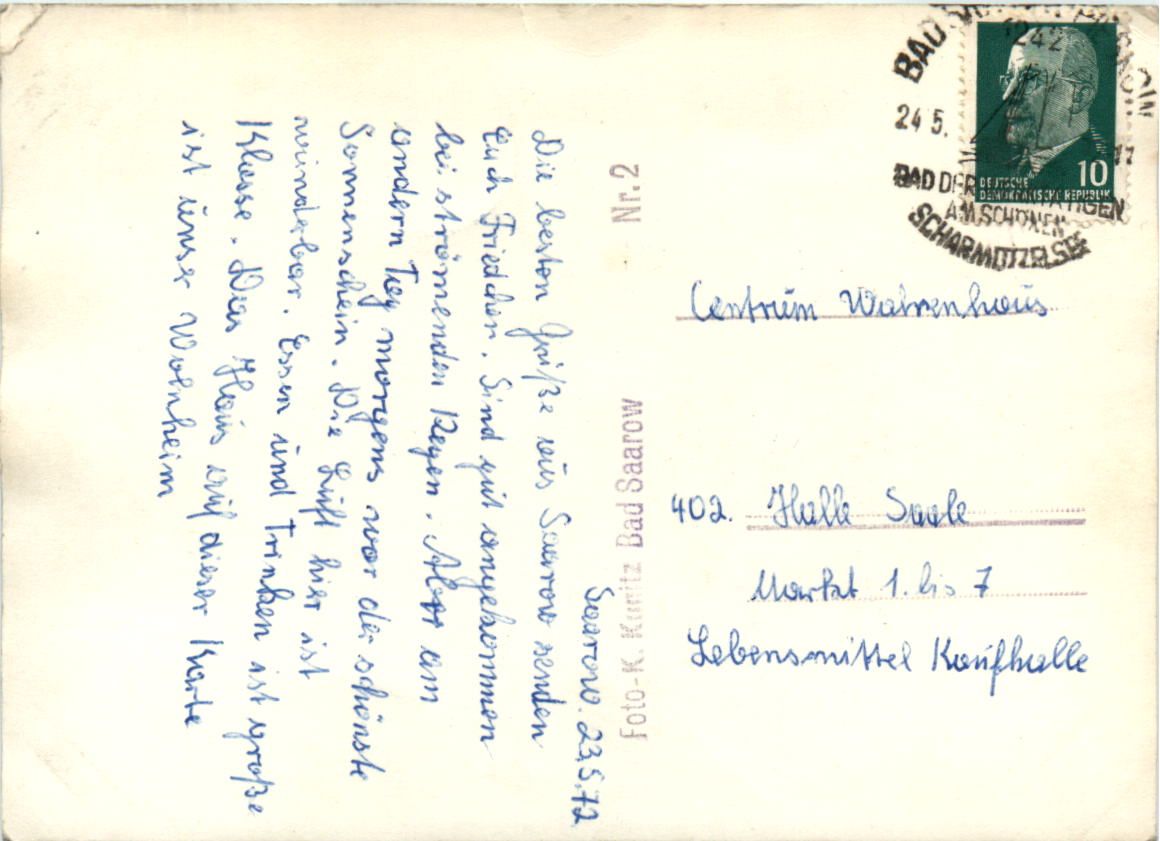 Saarow. 23.5.72
Die besten Grüße aus Saarow senden
Euch Friedchen. Sind gut angekommen
bei strömenden Regen. Aber am
andern Tag morgens war der schönste
Sonnenschein. Die Luft hier ist
wunderbar. Essen und Trinken ist große
Klasse. Das Haus auf dieser Karte
ist unser Wohnheim
Foto-K. Kunitz Bad Saarow Nr. 2
BAD
1242
24 5.
BAD DER
AM SCHÖNEN
SCHARMÜTZELSEE
10
DEUTSCHE
DEMOKRATISCHE REPUBLIK
Centrum Wahrenhaus
402. Halle Saale
Markt 1. bis 7
Lebensmittel Kaufhalle